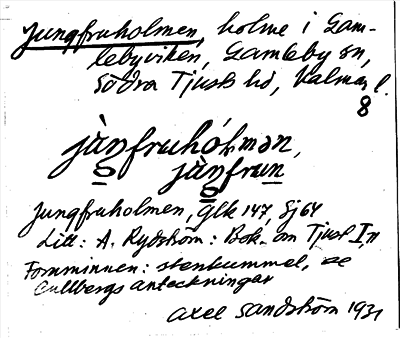 Jungfruholmen, holme i Gam-
lebyviken, Gamleby sn,
Södra Tjusts hd, Kalmar l.
8
jùŋfruhólmən,
jùŋfrun
Jungfruholmen, Glk 147, Sj 64
Litt: A. Rydström: Bok om Tjust I, 11
Fornminnen: stenkummel, se
Cullbergs anteckningar
Axel Sandström 1931